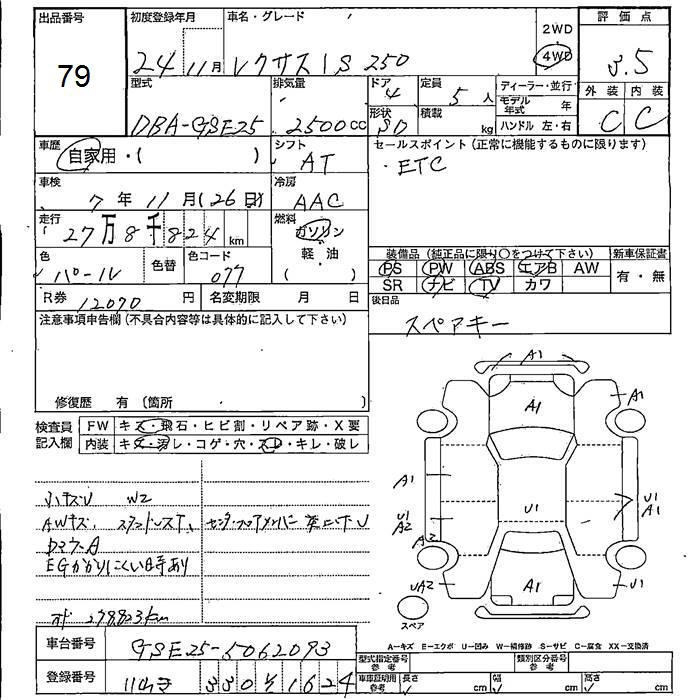 出品番号 初度登録年月 車名・グレード 評価点
79
24 11月 レクサスIS250 2WD 4WD 3.5
型式 排気量 ドア 4 定員 5人 ディーラー・並行 外装 内装
モデル年式 年 C C
DBA-GSE25 2500cc 形状 SD 積載 kg ハンドル 左・右
車歴 自家用・( ) シフト AT セールスポイント(正常に機能するものに限ります)
・ETC
車検 7年11月(26日) 冷房 AAC
走行 27万8千824km 燃料 ガソリン
軽・油 ( )
色 パール 色替 色コード 077 装備品(純正品に限り○をつけて下さい) 新車保証書
PS PW ABS エアB AW 有・無
SR ナビ TV カワ
R券 12070円 名変期限 月 日 後日品
スペアキー
注意事項申告欄(不具合内容等は具体的に記入して下さい)
修復歴 有(箇所 )
検査員記入欄 FW キズ・飛石・ヒビ割・リペア跡・X要
内装 キズ・汚レ・コゲ・穴・スレ・キレ・破レ
小キズU W2
AWキズ、
EGかかりにくい時あり
278823km
A1
A1
A1
A1
U1
A2
A2
U1
U1
A1
UA2
A1
U1
スペア
A-キズ E-エクボ U-凹み W-補修跡 S-サビ C-腐食 XX-交換済
車台番号 GSE25-5062093
型式指定番号参考 類別区分番号参考
登録番号 330 1624
車庫証明用参考 長さ cm 幅 cm 高さ cm